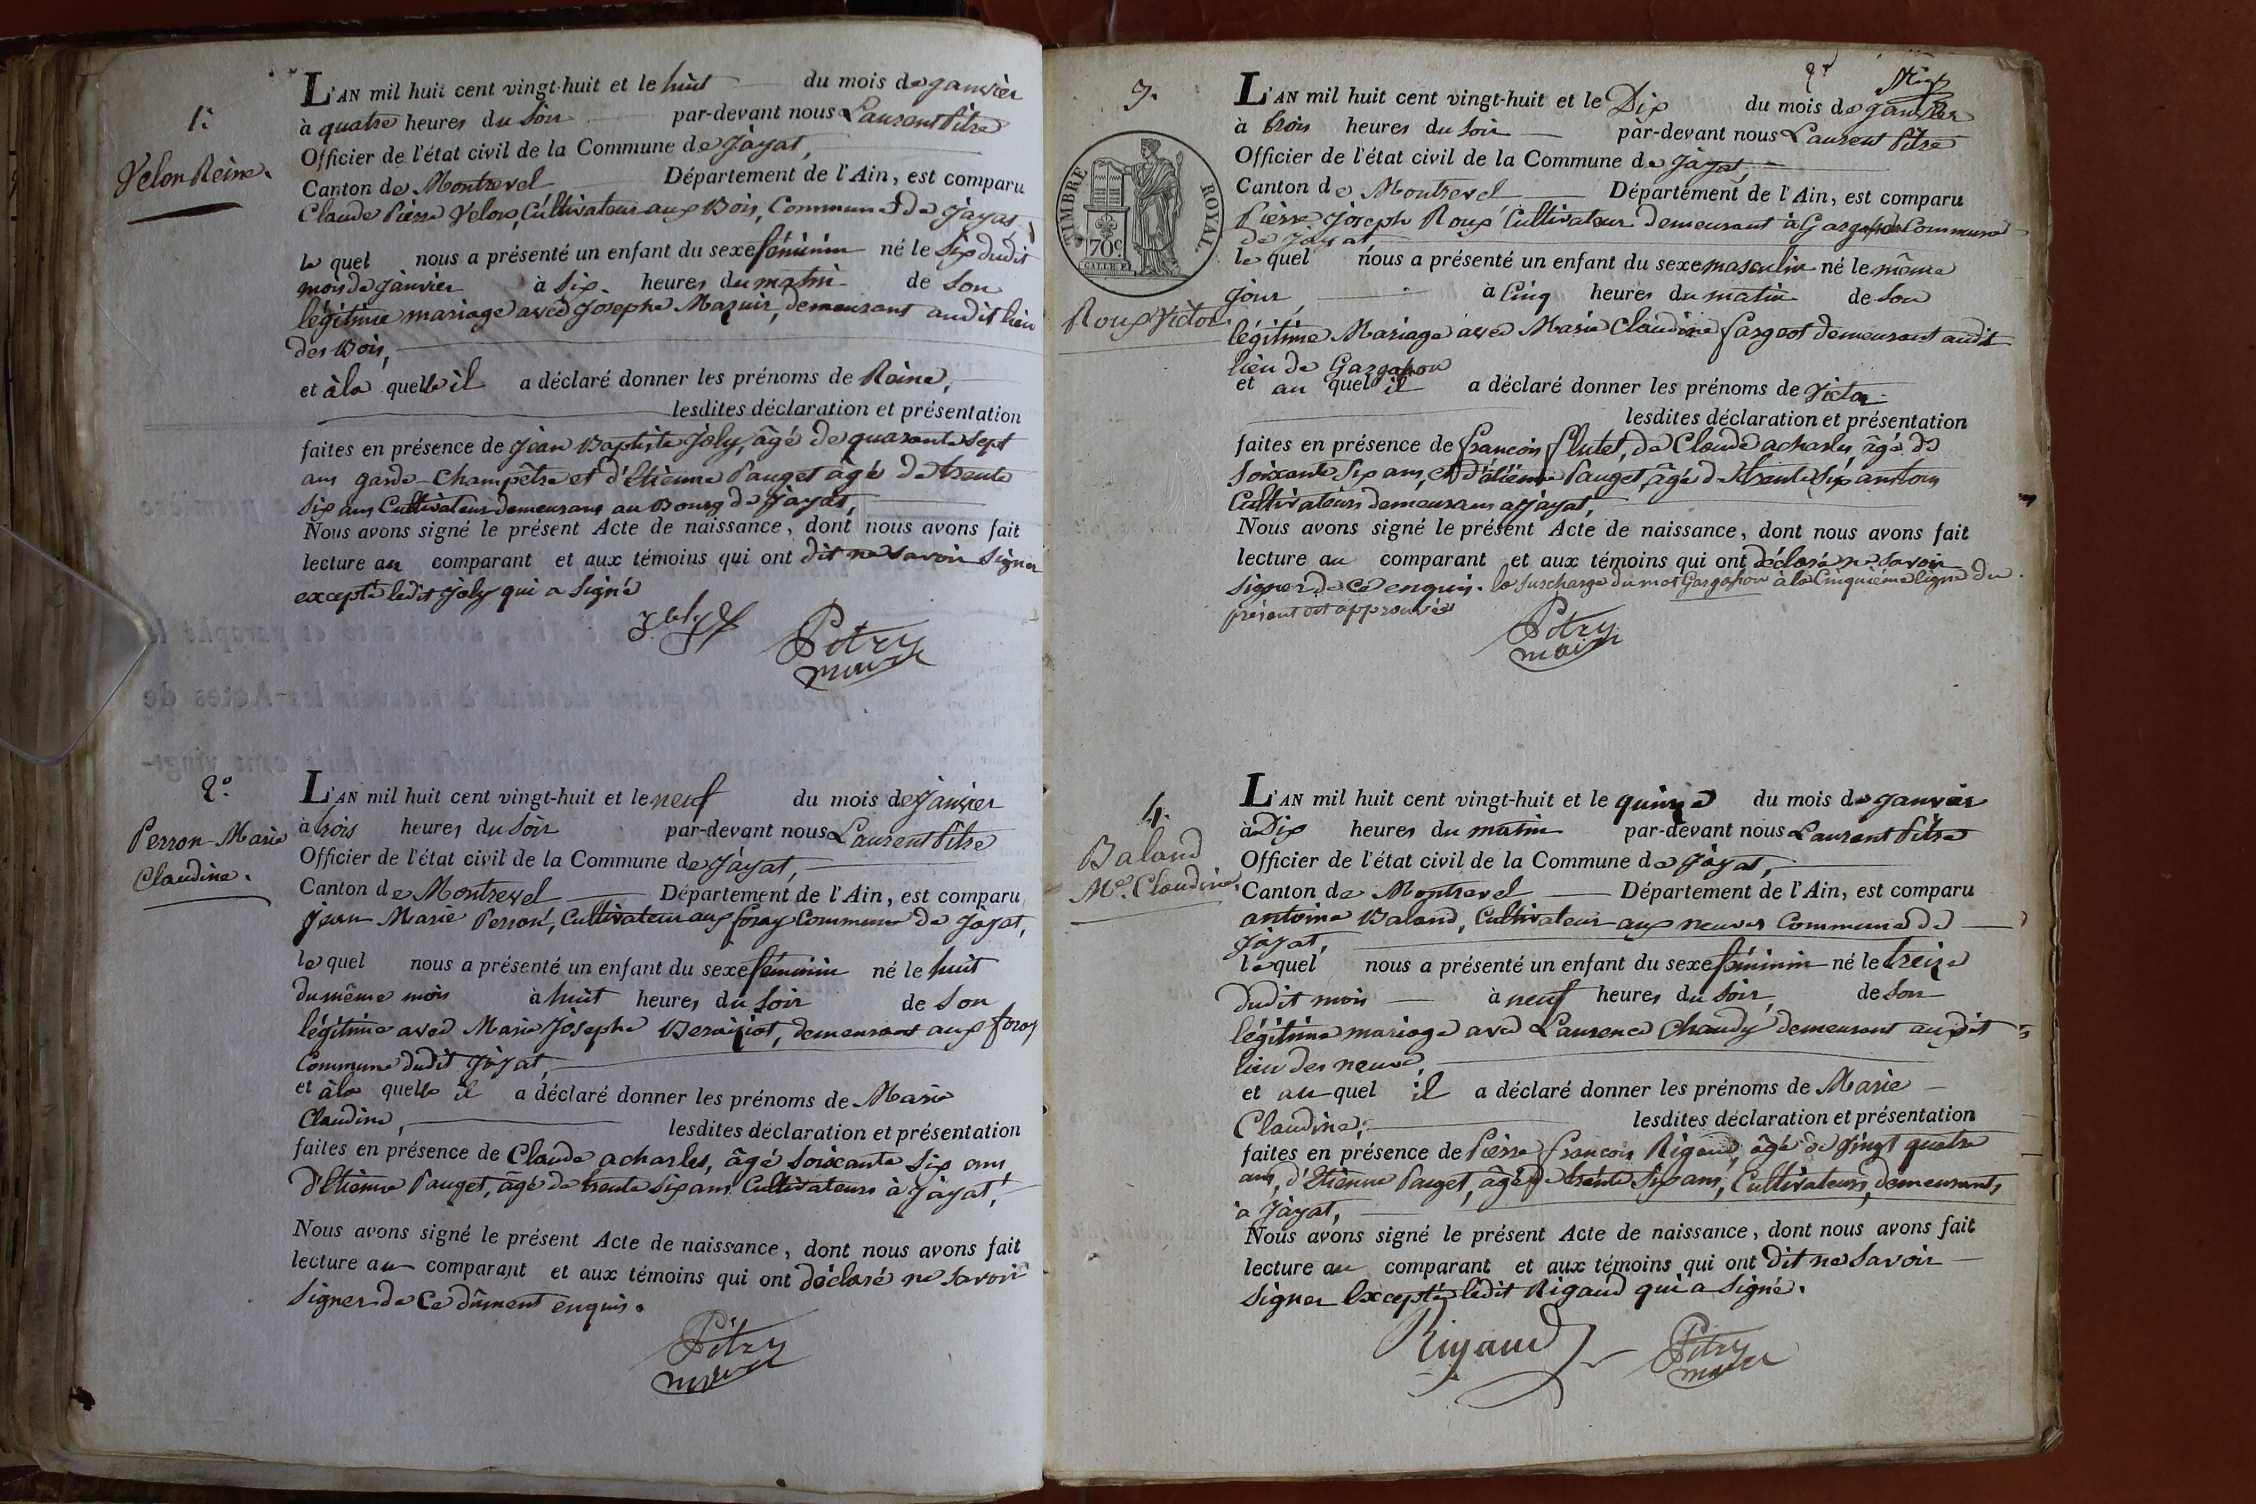 1.
Velon Reine.
L'AN mil huit cent vingt-huit et le huit du mois de janvier
à quatre heures du soir par-devant nous Laurent Pitre
Officier de l'état civil de la Commune de Jayat,
Canton de Montrevel Département de l'Ain, est comparu
Claude Pierre Velon, Cultivateur aux Bois, Commune de Jayat,
le quel nous a présenté un enfant du sexe féminin né le six dudit
mois de janvier à six heures du matin de son
légitime mariage avec Josephe Mazuir, demeurant audit lieu
des Bois,
et à la quelle il a déclaré donner les prénoms de Reine,
lesdites déclaration et présentation
faites en présence de Jean Baptiste Joly, âgé de quarante sept
ans garde-Champêtre et d'Etienne Pauget âgé de trente
six ans Cultivateur demeurans au Bourg de Jayat,
Nous avons signé le présent Acte de naissance, dont nous avons fait
lecture au comparant et aux témoins qui ont dit ne savoir signer
excepté ledit Joly qui a signé
Joly
Pitre
maire
2.°
Perron Marie
Claudine.
L'AN mil huit cent vingt-huit et le neuf du mois de janvier
à trois heures du soir par-devant nous Laurent Pitre
Officier de l'état civil de la Commune de Jayat,
Canton de Montrevel Département de l'Ain, est comparu
Jean Marie Perron, Cultivateur aux foray Commune de Jayat,
le quel nous a présenté un enfant du sexe féminin né le huit
du même mois à huit heures du soir de son
légitime avec Marie Josephe demeurant aux foray
Commune dudit Jayat,
et à la quelle il a déclaré donner les prénoms de Marie
Claudine, lesdites déclaration et présentation
faites en présence de Claude acharles, âgé soixante six ans,
d'Etienne Pauget, âgé de trente six ans Cultivateurs à Jayat,
Nous avons signé le présent Acte de naissance, dont nous avons fait
lecture au comparant et aux témoins qui ont déclaré ne savoir
signer de ce dûment enquis.
Pitre
maire
3.
TIMBRE ROYAL
70c
Roux Victor.
L'AN mil huit cent vingt-huit et le Dix du mois de janvier
à trois heures du soir par-devant nous Laurent Pitre
Officier de l'état civil de la Commune de Jayat,
Canton de Montrevel Département de l'Ain, est comparu
Pierre Joseph Roux Cultivateur demeurant à Gargapon Commune
de Jayat
le quel nous a présenté un enfant du sexe masculin né le même
jour, à cinq heures du matin de son
légitime Mariage avec Marie Claudine fargeot demeurant audit
lieu de Gargapon
et au quel il a déclaré donner les prénoms de Victor
lesdites déclaration et présentation
faites en présence de françois flutet, de Claude acharles, âgé de
soixante six ans, et d'étienne Pauget, âgé de trente six ans tous
Cultivateurs demeurans à Jayat,
Nous avons signé le présent Acte de naissance, dont nous avons fait
lecture au comparant et aux témoins qui ont déclaré ne savoir
signer de ce enquis. la surcharge du mot Gargapon à la Cinquième ligne du
présent est approuvée
Pitre
maire
4.
Baland
Mie. Claudine.
L'AN mil huit cent vingt-huit et le quinze du mois de janvier
à Dix heures du matin par-devant nous Laurent Pitre
Officier de l'état civil de la Commune de Jayat,
Canton de Montrevel Département de l'Ain, est comparu
antoine Baland, Cultivateur aux neuves Commune de
Jayat,
le quel nous a présenté un enfant du sexe féminin né le treize
dudit mois à neuf heures du soir, de son
légitime mariage avec Laurence Chaudy demeurant audit
lieu des neuve,
et au quel il a déclaré donner les prénoms de Marie
Claudine, lesdites déclaration et présentation
faites en présence de Pierre françois Rigaud, âgé de vingt quatre
ans, d'Etienne Pauget, âgé de trente six ans, Cultivateurs, demeurants
à Jayat,
Nous avons signé le présent Acte de naissance, dont nous avons fait
lecture au comparant et aux témoins qui ont dit ne savoir
signer Excepté ledit Rigaud qui a signé.
Rigaud
Pitre
maire